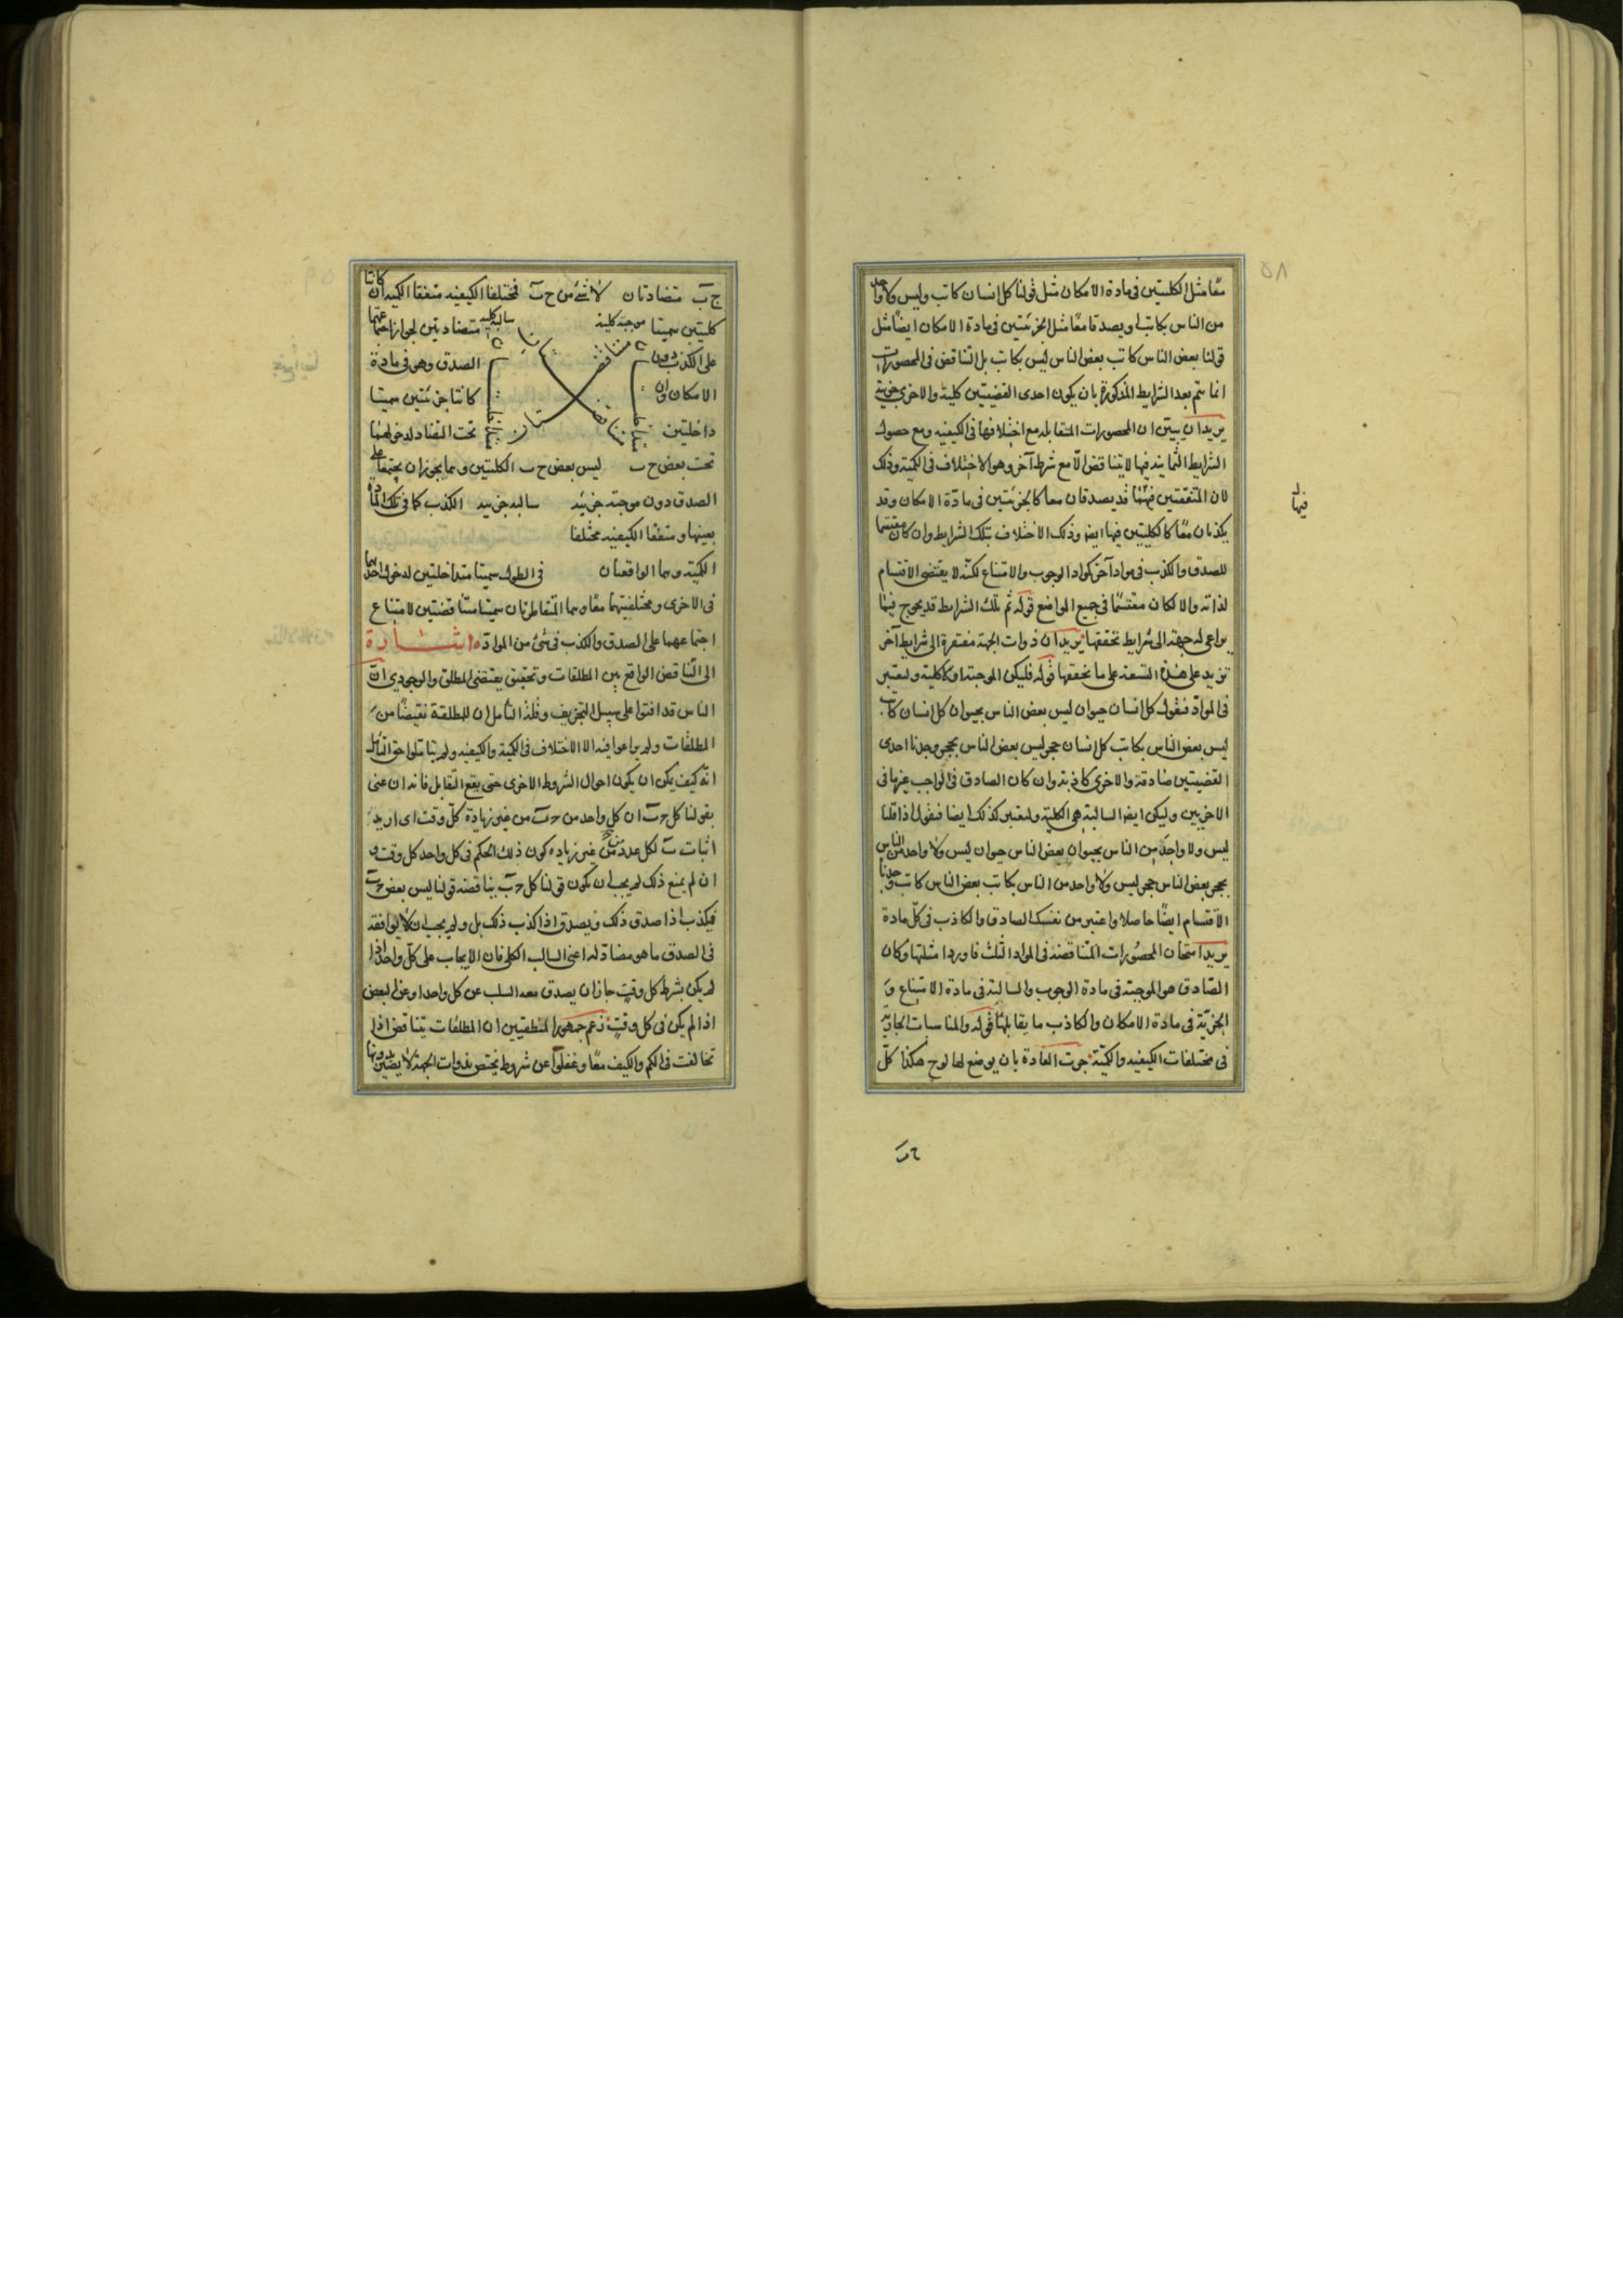 معًا مثل الكليتين فى مادة الامكان مثل قولنا كل انسان كاتب وليس ولا واحد
من الناس بكاتب او يصدقا معًا مثل الجزئيتين فى مادة الامكان ايضًا مثل
قولنا بعض الناس كاتب بعض الناس ليس بكاتب بل التناقض فى المحصورات
انما يتم بعد الشرايط المذكورة بان يكون احدى القضيتين كلية والاخرى جزية
يريد ان يبين ان المحصورات المتقابله مع اختلافها فى الكيفيه ومع حصول
الشرايط الثمانيه فيها لا يتناقض الّا مع شرط آخر وهو الاختلاف فى الكمية وذلك
لان المتفقتين فيها قد يصدقان معا كالجزئيتين فى مادّة الامكان وقد
يكذبان معًا كالكليتين فيها ايضا وذلك الاختلاف بتلك الشرايط وان كان مقتسما
للصدق والكذب فى مواد آخر كمواد الوجوب والامتناع لكنّه لا يقتضى الاقتسام
لذاته والا لكان مقتسمًا فى جميع المواضع قوله ثم تلك الشرايط قد يحوج فيما
يراعى له جهة الى شرايط نحققها يريد ان ذوات الجهة مفتقرة الى شرايط آخر
تزيد على هذه التسعة على ما نحققها قوله فليكن الموجبة اولا كلية ولنعتبر
فى المواد فنقول كل انسان حيوان ليس بعض الناس بحيوان كل انسان كاتب
ليس بعض الناس بكاتب كل انسان حجر ليس بعض الناس بحجر وجدنا احدى
القضيتين صادقة والاخرى كاذبة وان كان الصادق فى الواجب غيرها فى
الاخريين وليكن ايضا السالبة هى الكلية ولنعتبر كذلك ايضا فنقول اذا قلنا
ليس ولا واحد من الناس بحيوان بعض الناس حيوان ليس ولا واحد من الناس
بحجر بعض الناس حجر ليس ولا واحد من الناس بكاتب بعض الناس كاتب وجدنا
الاقتسام ايضًا حاصلا واعتبر من نفسك الصادق والكاذب فى كل مادة
يريد امتحان المحصورات المتناقضه فى المواد الثلث فاورد امثلتها وكان
الصّادق هو الموجبة فى مادة الوجوب والسالبة فى مادة الامتناع و
الجزيّة فى مادة الامكان والكاذب ما يقابلها قوله والمناسبات الجارية
فى مختلفات الكيفيه والكمّية جرت العادة بان يوضع لها لوح هكذا كلّ
ح ب
فيها
ج ب متضادتان لا شئ من ح ب فختلفا الكيفيه متفقا الكميه ان كانتا
كليتين سميتا موجبه كلية سالبه كليه متضادتين لجواز اجتماعهما
على الكذب دون الصدق وهو فى مادة
الامكان وان كانتا جزئيتين سميتا
داخلتين تحت التضاد لدخولهما
تحت بعض ح ب ليس بعض ح ب الكليتين وهما يجوزان يجتمعا على
الصدق دون موجبة جزئيه سالبه جزئيه الكذب كما فى تلك المادة
بعينها ومتفقا الكيفيه مختلفا
الكميّة وهما الواقعتان فى الطول سميتا متداخلتين لدخول احديهما
فى الاخرى ومختلفيتهما معًا وهما المتقاطرتان سميتا متناقضتين لامتناع
اجتماعهما على الصدق والكذب فى شئ من المواد اشارة
الى التناقض الواقع بين المطلقات وتحقيق يقتضى المطلق والوجودي ان
الناس قد افتوا على سبيل التحريف وقلة التأمل ان للمطلقة نقيضًا من
المطلقات ولم يراعوا فيه الا الاختلاف فى الكمية والكيفيه ولم يتأملوا حق التأمل
انه كيف يمكن ان يكون احوال الشروط الاخرى حتى يقع التقابل فانه ان عنى
بقولنا كل ح ب ان كل واحد من ح ب من غير زيادة كلّ وقت اى اريد
اثبات ب لكل عدد من غير زيادة كون ذلك الحكم فى كل واحد كل وقت و
ان لم يمنع ذلك لم يجب ان يكون قولنا كل ح ب يناقضه قولنا ليس بعض ح ب
فيكذب اذا صدق ذلك ويصدق اذا كذب ذلك بل ولم يجب ان لا يوافقه
فى الصدق ما هو مضاد له اعنى السالب الكلى فان الايجاب على كلّ واحد اذا
لم يكن بشرط كل وقت جاز ان يصدق معه السلب عن كل واحد او عن البعض
اذا لم يكن فى كل وقت زعم جمهور المنطقيين ان المطلقات يتناقض اذا
تخالفت فى الكم والكيف معًا وغفلوا عن شروط يختص بذوات الجهة لا يتعين بدونها